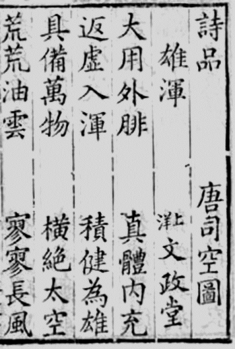 詩品 唐司空圖
雄渾 上洋文政堂
大用外腓 真體內充
返虛入渾 積健為雄
具備萬物 橫絕太空
荒荒油雲 寥寥長風